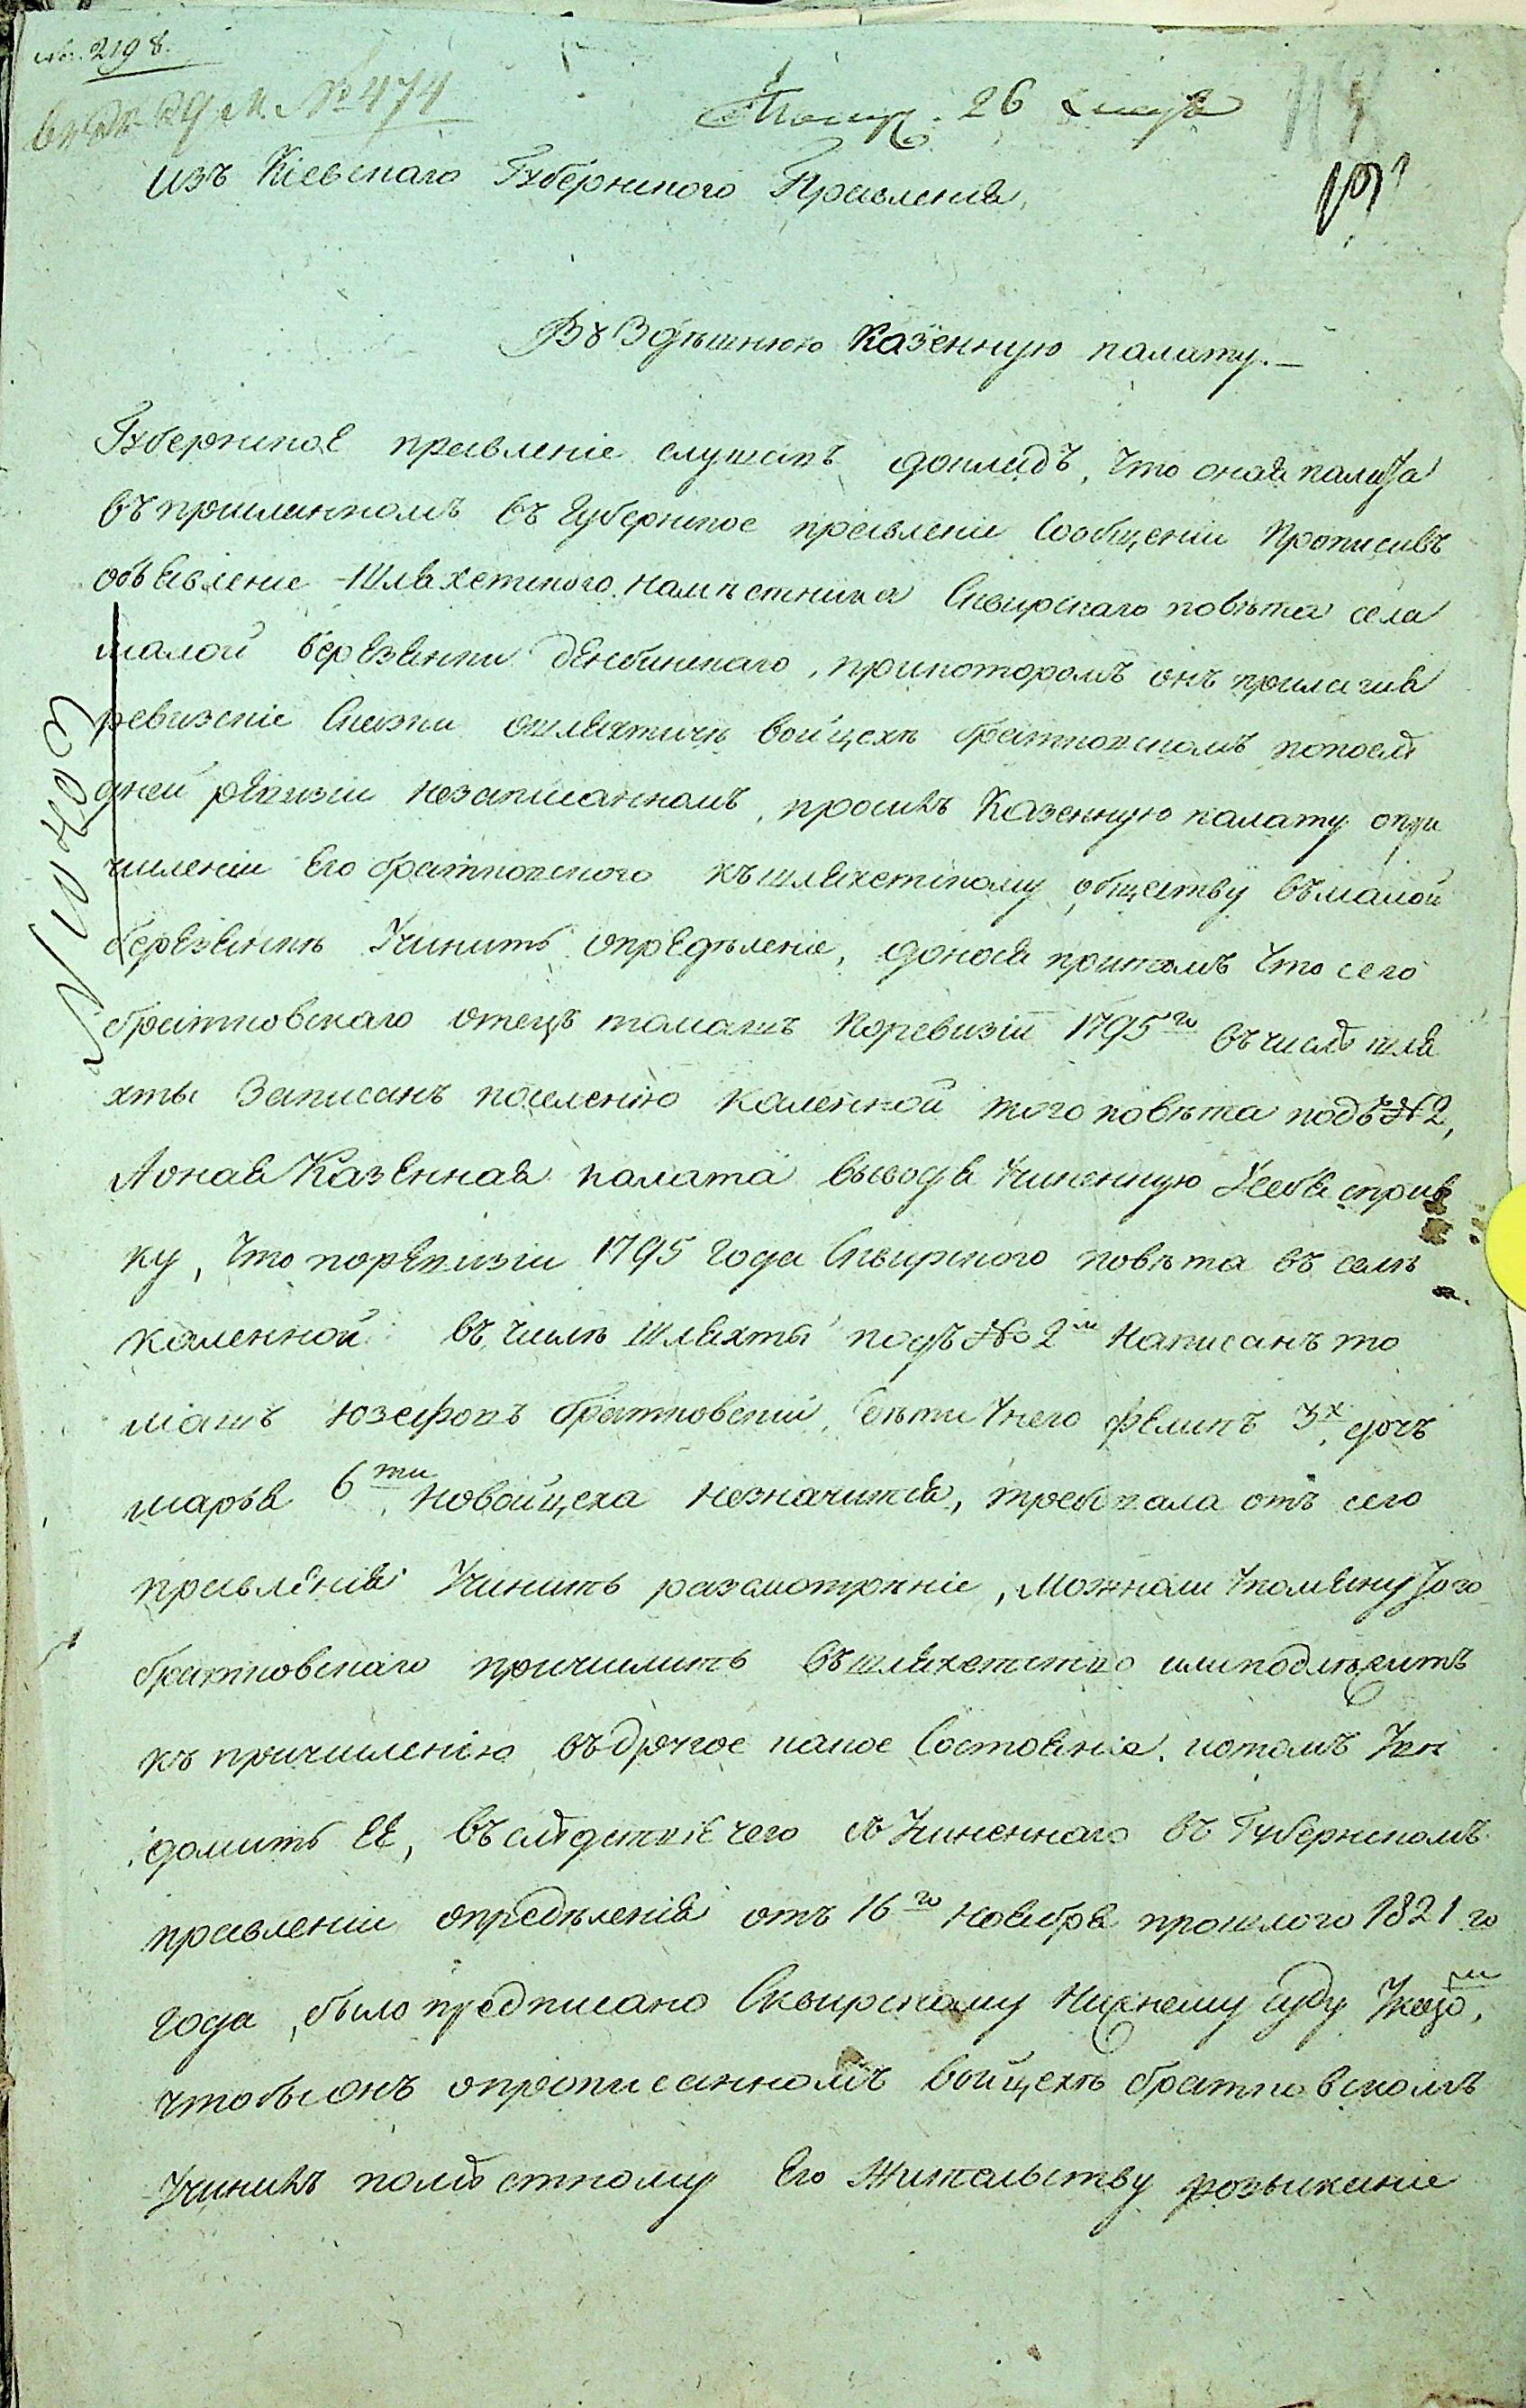 № 2198.
№ 474
26
изъ Кіевскаго Губернского Правленія,
Въ Здѣшнюю Казенную палату.—
Губернское правленіе слушавъ докладъ, что оная палата
въ присланномъ въ Губернское правленіе Сообщеніи прописавъ
объявленіе Шляхетского намѣстника Сквирскаго повѣта села
малой березянки Денбицкаго, прикоторомъ онъ прилагая
ревизскіе Сказки ошляхтичѣ войцехѣ братковскомъ попослѣ
дней ревизіи незаписанномъ, просилъ Казенную палату опри
численіи Его братковского къшляхетскому обществу въмалой
березянкѣ Учинить опредѣленіе, донося притомъ что сего
братковскаго отецъ томашъ Поревизіи 1795го въчислѣ шля
хты Записанъ поселенію каленной того повѣта подъ № 2,
Аоная Казенная палата выводя Учиненную Усебя справ
ку, что поревизіи 1795 года Сквирского повѣта въ селѣ
каленной въ числѣ шляхты подъ № 2м написанъ то
машъ юзефовъ братковскій, дѣти Унего феликъ 3х дочь
марья 6ти, новойцеха незначится, требовала отъ сего
правленія Учинить разсмотрѣніе, можноли Упомянутого
братковскаго причислить въшляхетство илиподлежитъ
къ причисленію въдругое какое Состояніе, ипотомъ Увѣ
домить Ее, въслѣдствіе чего и Учиненнаго въ Губернскомъ
правленіи опредѣленія отъ 16го ноября прошлого 1821го
года, было предписано Сквирскому нижнему суду Указомъ,
чтобы онъ опрописанномъ войцехѣ братковскомъ
Учинилъ помѣстному Его Жительству розысканіе